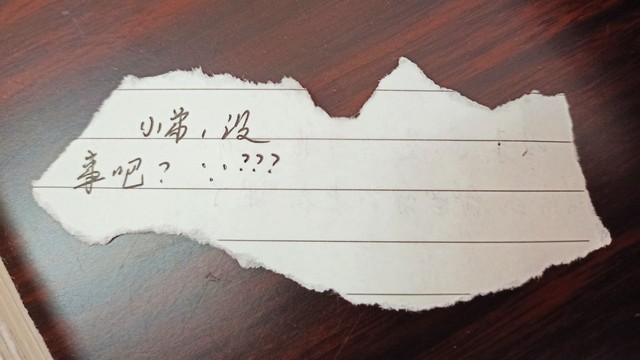 小弟，没
事吧？：：???